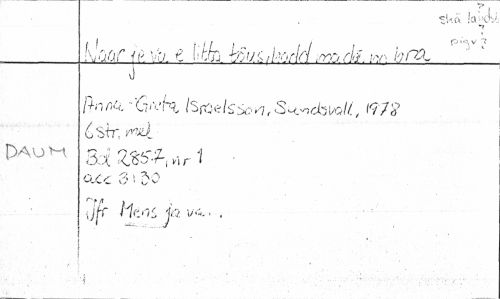 ?
skå landé
?
pigv?
Naar je va e litta töus, hadd ma dä, no bra
Anna-Greta Israelsson, Sundsvall, 1978
6 str, mel
DAUM
Bd 2857, nr 1
acc 3130
Jfr Mens ja va..